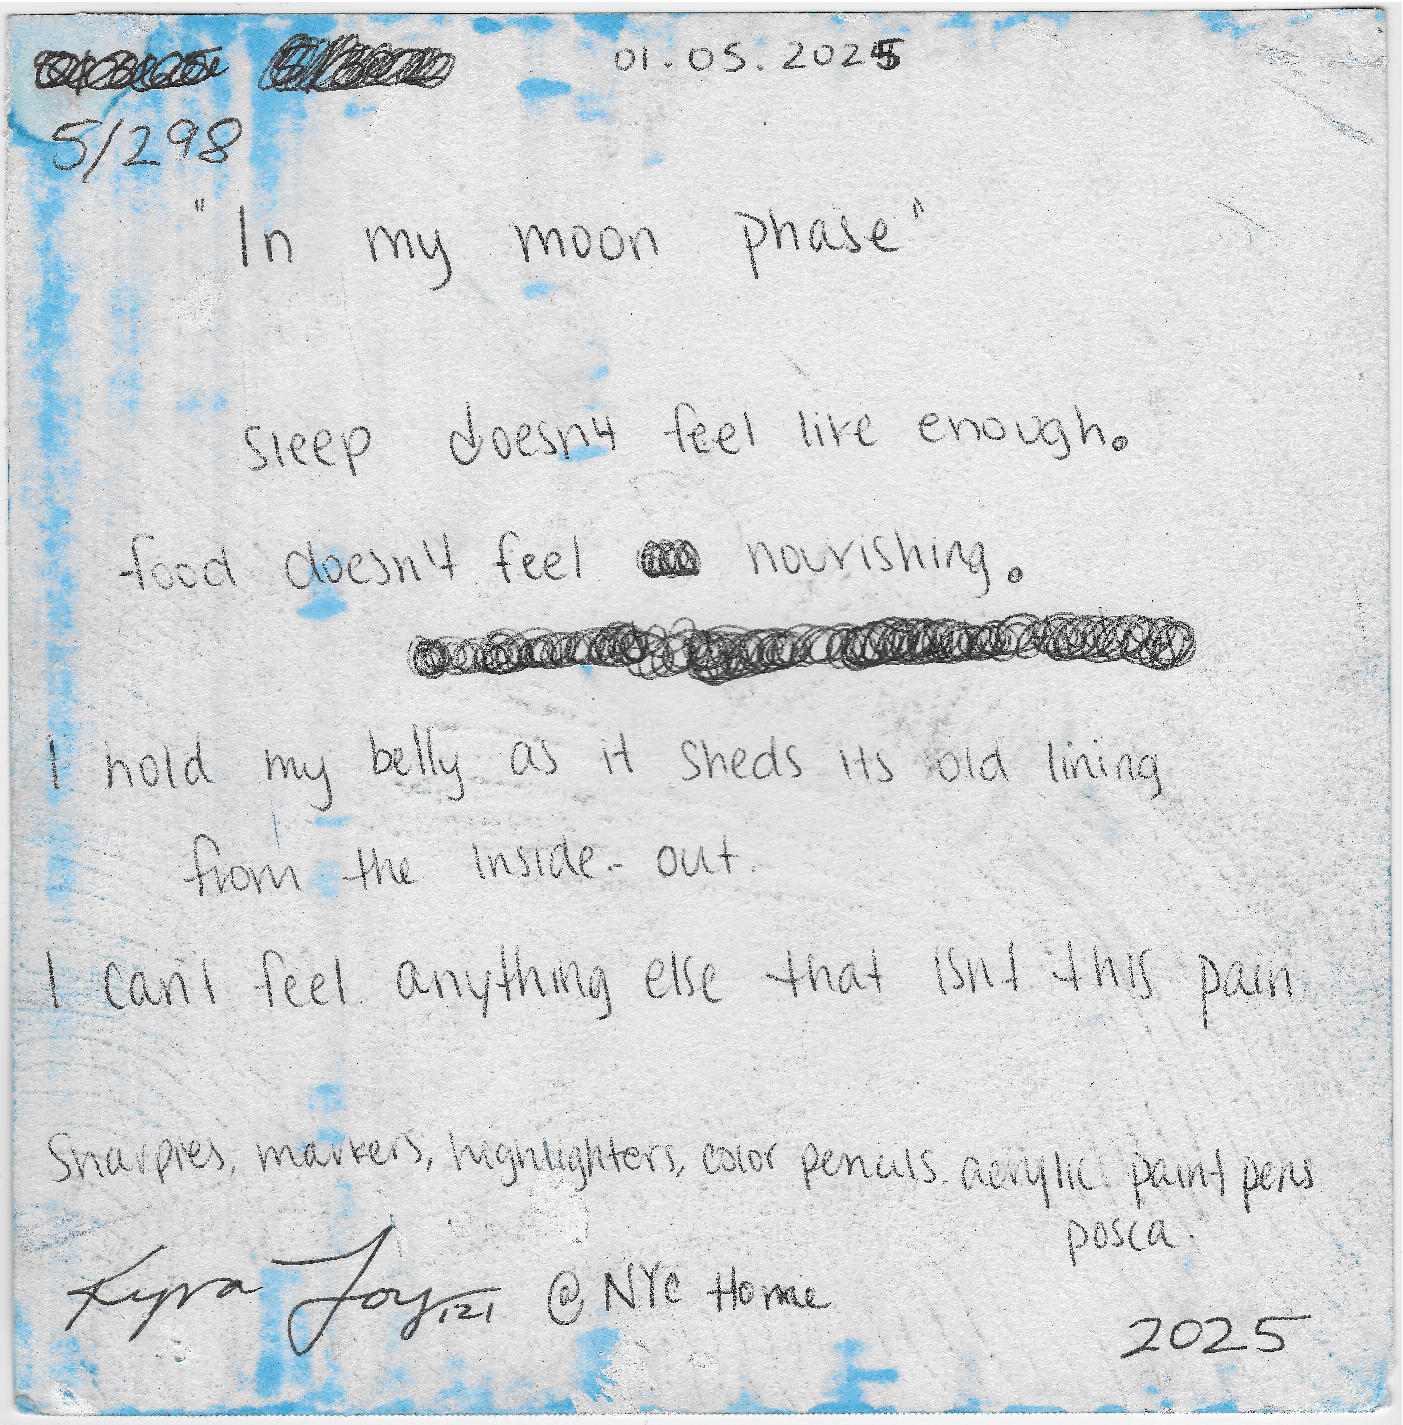 01.05.2025
5/298
"In my moon phase"
sleep doesn't feel like enough.
food doesn't feel nourishing.
I hold my belly as it sheds its old lining
from the inside-out.
I can't feel anything else that isnt this pain
Sharpies, markers, highlighters, color pencils. acrylic paint pens
posca.
Kyra Joy 121 @ NYC Home
2025